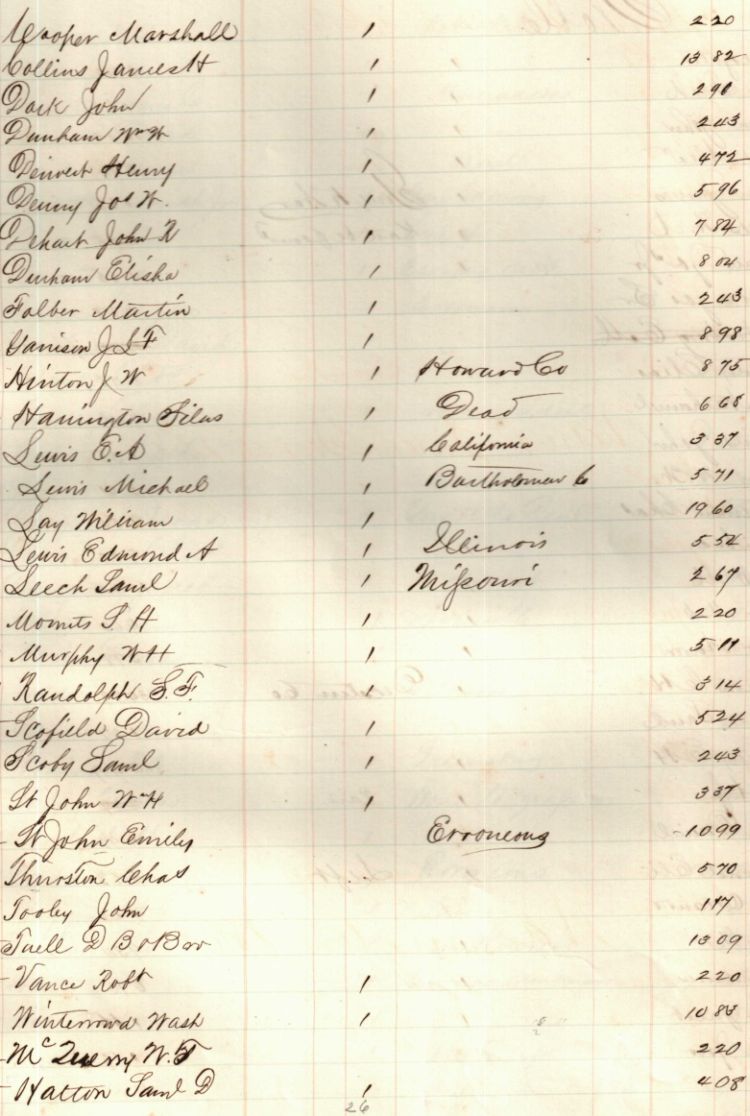 Cooper Marshall 1 220
Collins James H 1 1382
Dark John 1 291
Dunham Wm W 1 243
Deiwert Henry 1 472
Denny Jos W. 1 596
Dehart John R 1 784
Durham Elisha 1 804
Folber Martin 1 243
Garrison J S F 1 898
Hinton J W 1 Howard Co 875
Harrington Silas 1 Dead 668
Lewis E. A 1 California 337
Lewis Michael 1 Bartholomew Co 571
Lay William 1 1960
Lewis Edmond A 1 Illinois 554
Leech Saml 1 Missouri 267
S H 1 220
Murphy W H 1 511
Randolph S. F. 1 314
Scofield David 1 524
Scoby Saml 1 243
St John W H 1 337
St John Emily Erroneous 1099
Thurston Chas 570
Tooley John 117
Tuell D B & Bro 1309
Vance Robt 1 220
Winterrowd Wash 1 1083
McQuerry W. F 220
Hatton Saml D 1 408
26